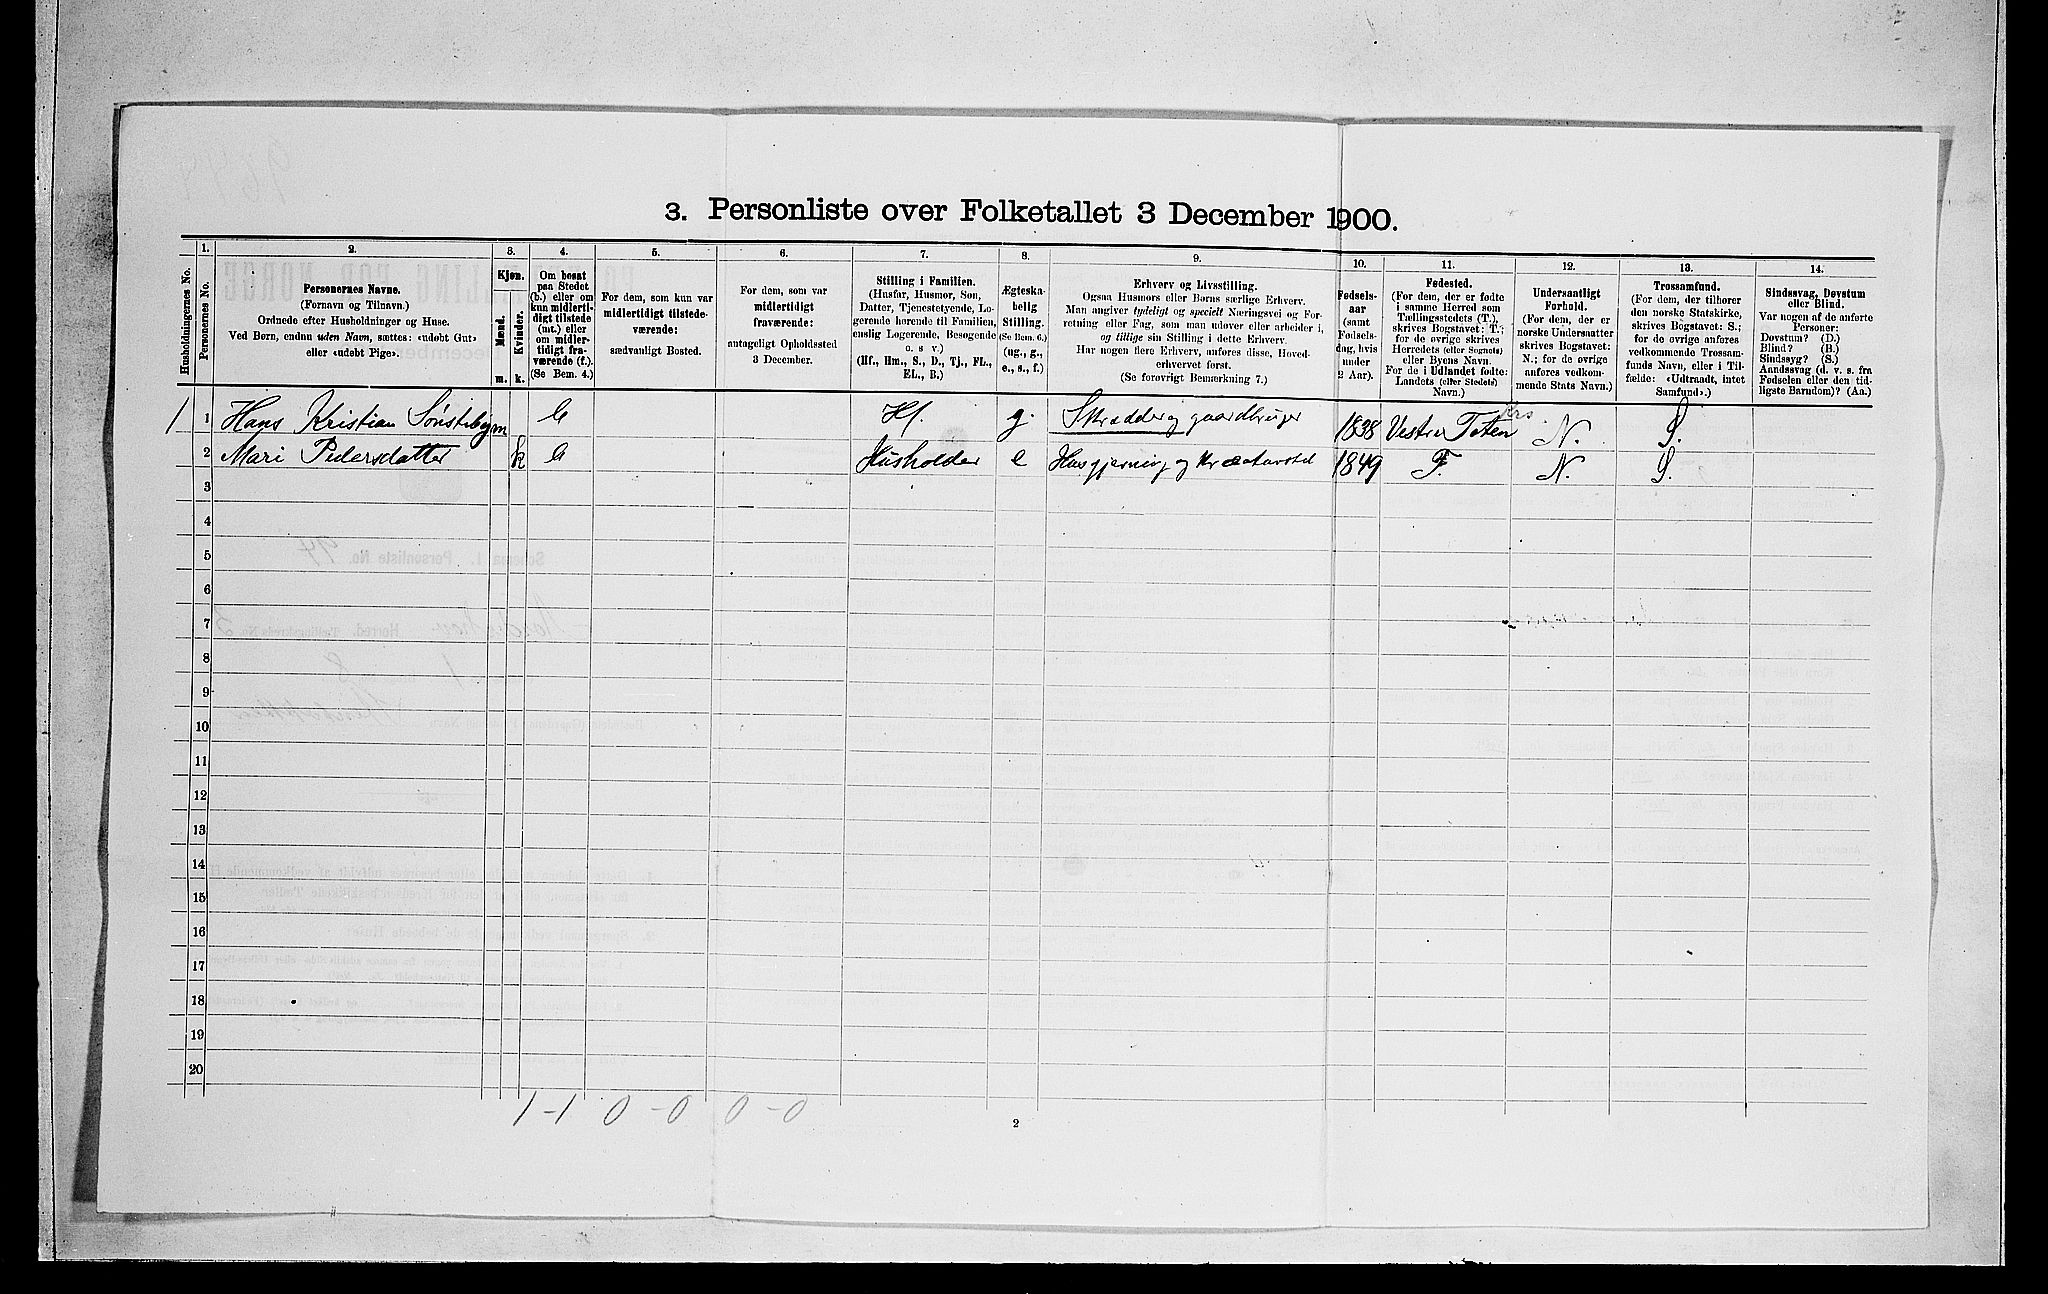 3. Personliste over Folketallet 3 December 1900.
Husholdningernes No.
1.
Personernes No.
2.
Personernes Navne.
(Fornavn og Tilnavn.)
Ordnede efter Husholdninger og Huse.
Ved Børn, endnu uden Navn, sættes: «udøbt Gut»
eller «udøbt Pige».
3.
Kjøn.
Mænd.
Kvinder.
m.
k.
4.
Om bosat
paa Stedet
(b.) eller om
kun midlerti-
digt tilstede
(mt.) eller
om midler-
tidigt fra-
værende (f.).
(Se Bem. 4.)
5.
For dem, som kun var
midlertidigt tilstede-
værende:
sædvanligt Bosted.
6.
For dem, som var
midlertidigt
fraværende:
antageligt Opholdssted
3 December.
7.
Stilling i Familien.
(Husfar, Husmor, Søn,
Datter, Tjenestetyende, Lo-
gerende hørende til Familien,
enslig Logerende, Besøgende
o. s v.)
(Hf., Hm., S., D., Tj., FL.,
EL., B.)
8.
Ægteska-
belig
Stilling.
(Se Bem. 6.)
(ug., g.,
e., s., f.)
9.
Erhverv og Livsstilling.
Ogsaa Husmors eller Børns særlige Erhverv.
Man angiver tydeligt og specielt Næringsvei og For-
retning eller Fag, som man udøver eller arbeider i,
og tillige sin Stilling i dette Erhverv.
Har nogen flere Erhverv, anføres disse, Hoved-
erhvervet først.
(Se forøvrigt Bemærkning 7.)
10.
Fødsels-
aar
(samt
Fødsels-
dag, hvis
under
2 Aar).
11.
Fødested.
(For dem, der er fødte
i samme Herred som
Tællingsstedets (T.),
skrives Bogstavet: T.;
for de øvrige skrives
Herredets (eller Sognets)
eller Byens Navn.
For de i Udlandet fødte:
Landets (eller Stedets)
Navn.)
12.
Undersaatligt
Forhold.
(For dem, der er
norske Undersaatter
skrives Bogstavet:
N.; for de øvrige
anføres vedkom-
mende Stats Navn.)
13.
Trossamfund.
(For dem, der tilhører
den norske Statskirke,
skrives Bogstavet: S.;
for de øvrige anføres
vedkommende Trossam-
funds Navn, eller i Til-
fælde: «Udtraadt, intet
Samfund».)
14.
Sindssvag, Døvstum
eller Blind.
Var nogen af de anførte
Personer:
Døvstum? (D.)
Blind? (B.)
Sindssyg? (S.)
Aandssvag (d. v. s. fra
Fødselen eller den tid-
ligste Barndom)? (Aa.)
1 1 Hans Kristian Sønsteby m b Hf. g. Skrædder og gaardbruger 1838 Vestre Toten Krs N. S.
2 Mari Pedersdatter k b Husholder e Husgjerning og kræaturstel 1849 T. N. S.
3
4
5
6
7
8
9
10
11
12
13
14
15
16
17
18
19
20
1 - 1 0 - 0 0 - 0
2